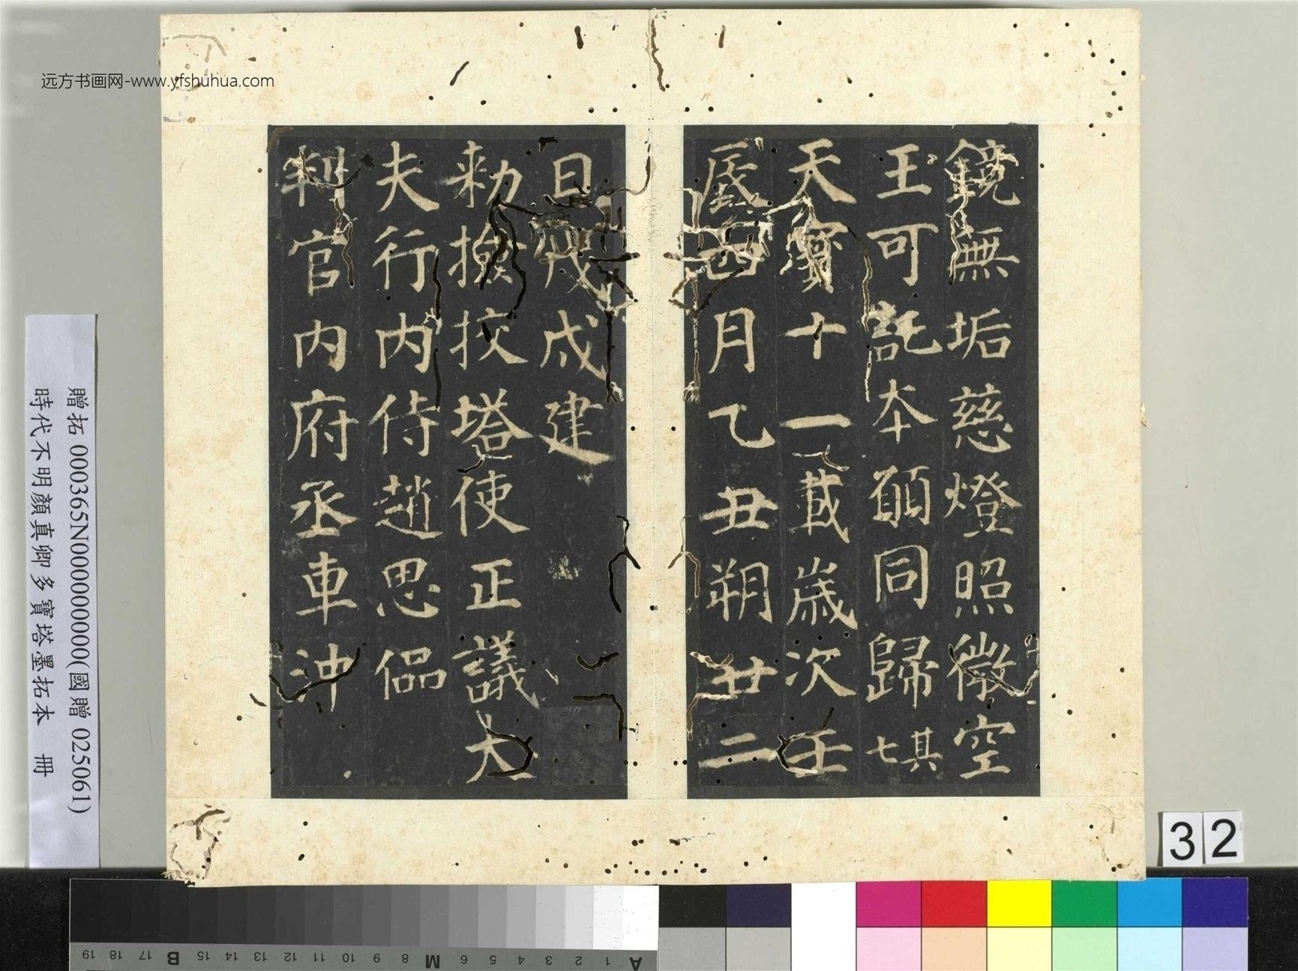 远方书画网-www.yfshuhua.com
鏡無垢慈燈照微空
王可託本願同歸其七
天寶十一載歲次壬
辰四月乙丑朔廿二
日戊戌建
勑撿挍塔使正議大
夫行内侍趙思侣
判官内府丞車沖
贈拓 000365N000000000(國贈 025061)
時代不明顏真卿多寶塔墨拓本 冊
32
19 18 17 B 15 14 13 12 11 10 9 8 M 6 5 4 3 2 1 A